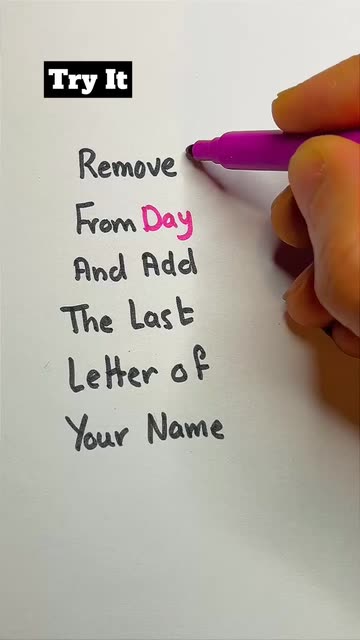 Try It
Remove
From Day
And Add
The Last
Letter of
Your Name